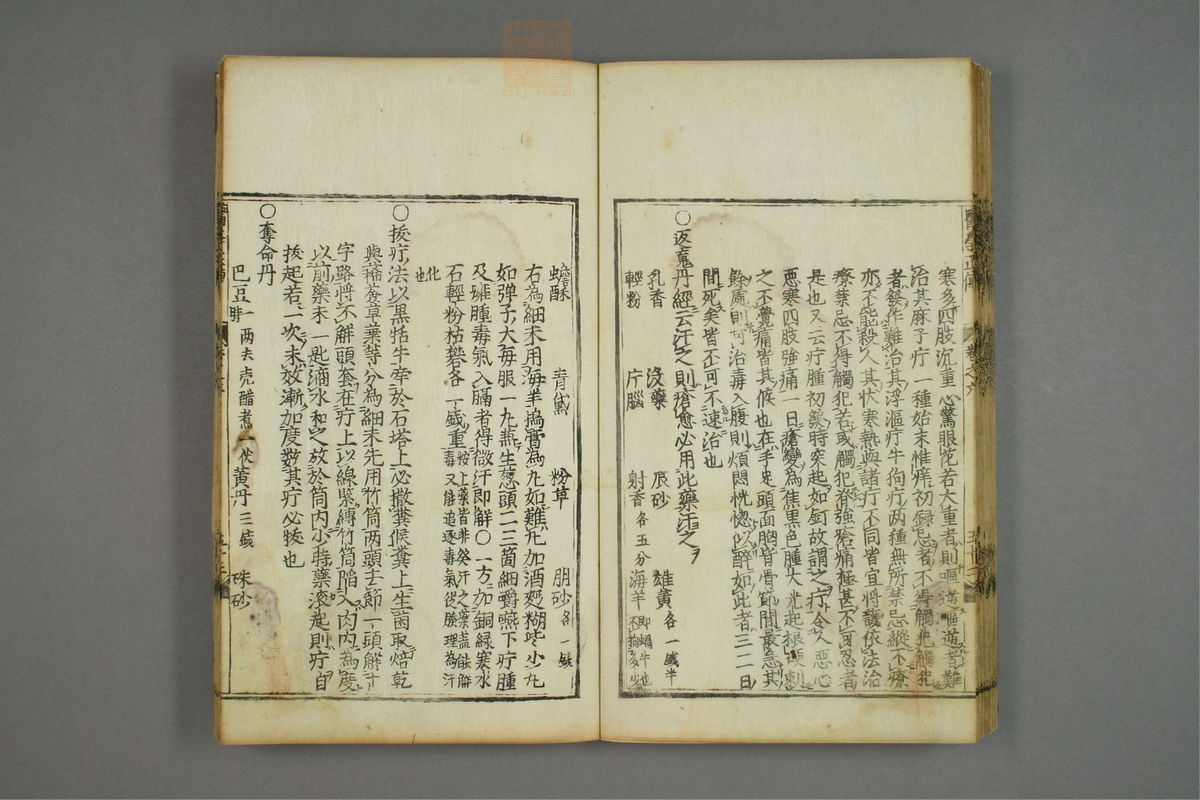 寒多四肢沉重心驚眼花若大重者則嘔逆嘔逆者難
治其麻子疔一種始末惟痒初錄忌者不得觸犯觸犯
者發作難治其浮漚疔牛狗疔两種無所禁忌縱不療
亦不能殺人其状寒熱與諸疔不同皆宜將護依法治
療葉忌不得觸犯若或觸犯脊強瘡痛極甚不可忍者
是也又云疔腫初發時突起如釘故謂之疔令人惡心
惡寒四肢強痛一日瘡變為焦黑色腫大光起根硬剌
之不覺痛皆其候也在手足頭面胸背骨節間最急其
餘處則可治毒入腹則煩悶恍惚以醉如此者三二日
間死矣皆不可不速治也
〇返魂丹經云汗之則瘡愈必用此藥汗之
乳香 没藥 辰砂 雄黄各一戔半
輕粉 片腦 射香各五分 海羊即蝸牛也不拘多少
蟾酥 青黛 粉草 朋砂各一戔
右為細末用海羊搗膏為丸如難丸加酒麪糊些少丸
如弹子大每服一丸蔥生葱頭二三箇細嚼嚥下疔腫
及癰腫毒氣入膈者得微汗即解〇一方加銅緑寒水
石輕粉枯礬各一戔重按上藥皆非發汗之藥盖能解毒又能追逐毒氣從腠理為汗
化也
〇拔疔法以黒牯牛牽於石塔上必撒糞候糞上生菌取焙乾
與豨薟草葉等分為細末先用竹筒两頭去節一頭解十
字路將不解頭套在疔上以線紥縛竹筒陷入肉内為度
以前藥末一匙滴水和之放於筒内少時藥滚起則疔自
拔起若一次未效漸加度数其疔必拔也
〇奪命丹
巴豆一两去壳醋煮 黄丹三戔 硃砂